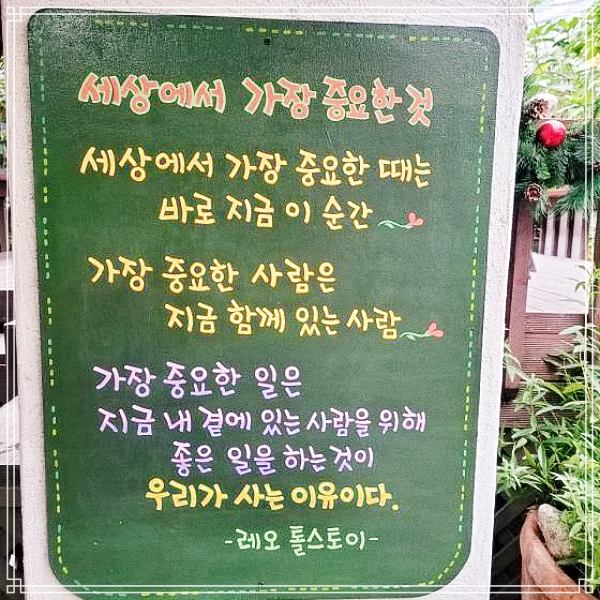 세상에서 가장 중요한 것
세상에서 가장 중요한 때는
바로 지금 이 순간
가장 중요한 사람은
지금 함께 있는 사람
가장 중요한 일은
지금 내 곁에 있는 사람을 위해
좋은 일을 하는 것이
우리가 사는 이유이다.
-레오 톨스토이-